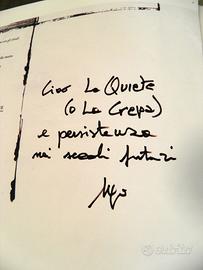 Ciao La Quiete
(o La Crepa)
e persistenza
nei secoli futuri
subito